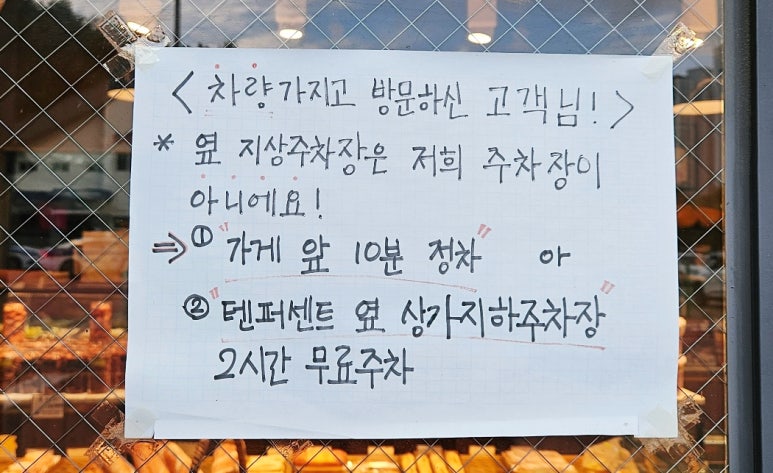 < 차량가지고 방문하신 고객님! >
* 옆 지상주차장은 저희 주차장이
아니에요!
⇒ ① "가게 앞 10분 정차" 아
② "텐퍼센트 옆 상가지하주차장"
2시간 무료주차